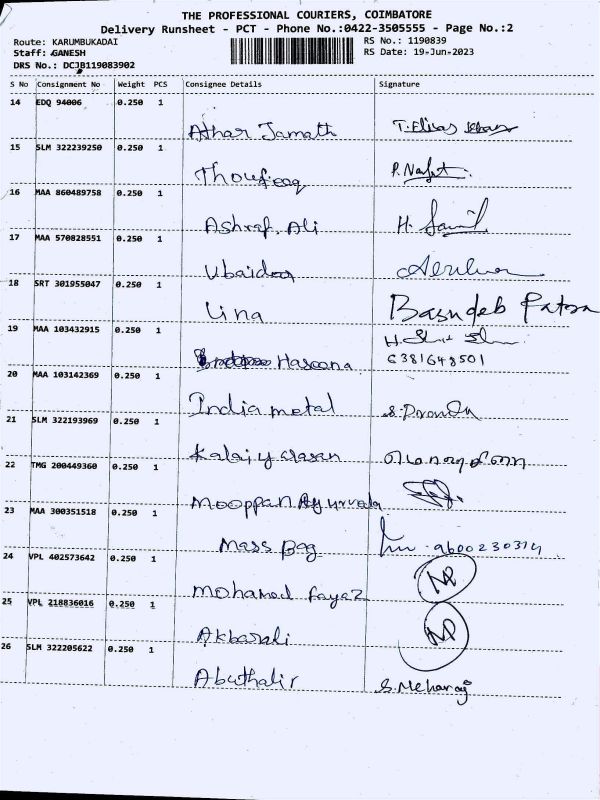 THE PROFESSIONAL COURIERS, COIMBATORE
Delivery Runsheet - PCT - Phone No.:0422-3505555 - Page No.:2
Route: KARUMBUKADAI
RS No.: 1190839
Staff: GANESH
RS Date: 19-Jun-2023
DRS No.: DCJB119083902
S No Consignment No Weight PCS Consignee Details Signature
14 EDQ 94006 0.250 1
Athar Jamath T. Elias
15 SLM 322239250 0.250 1
Thoufeeq P. 
16 MAA 860489758 0.250 1
Ashraf. Ali H.
17 MAA 570828551 0.250 1
Ubaidea
18 SRT 301955047 0.250 1
Lina Basudeb Patra
19 MAA 103432915 0.250 1
Haseena 6381648501
20 MAA 103142369 0.250 1
India metal
21 SLM 322193969 0.250 1
Kalaiyarasan
22 TMG 200449360 0.250 1
Mooppan Ayurveda
23 MAA 300351518 0.250 1
Mass Bag 9600230314
24 VPL 402573642 0.250 1
Mohamed Fayaz NP
25 VPL 218836016 0.250 1
Akbarali NP
26 SLM 322205622 0.250 1
Abuthalir S. Meharaj